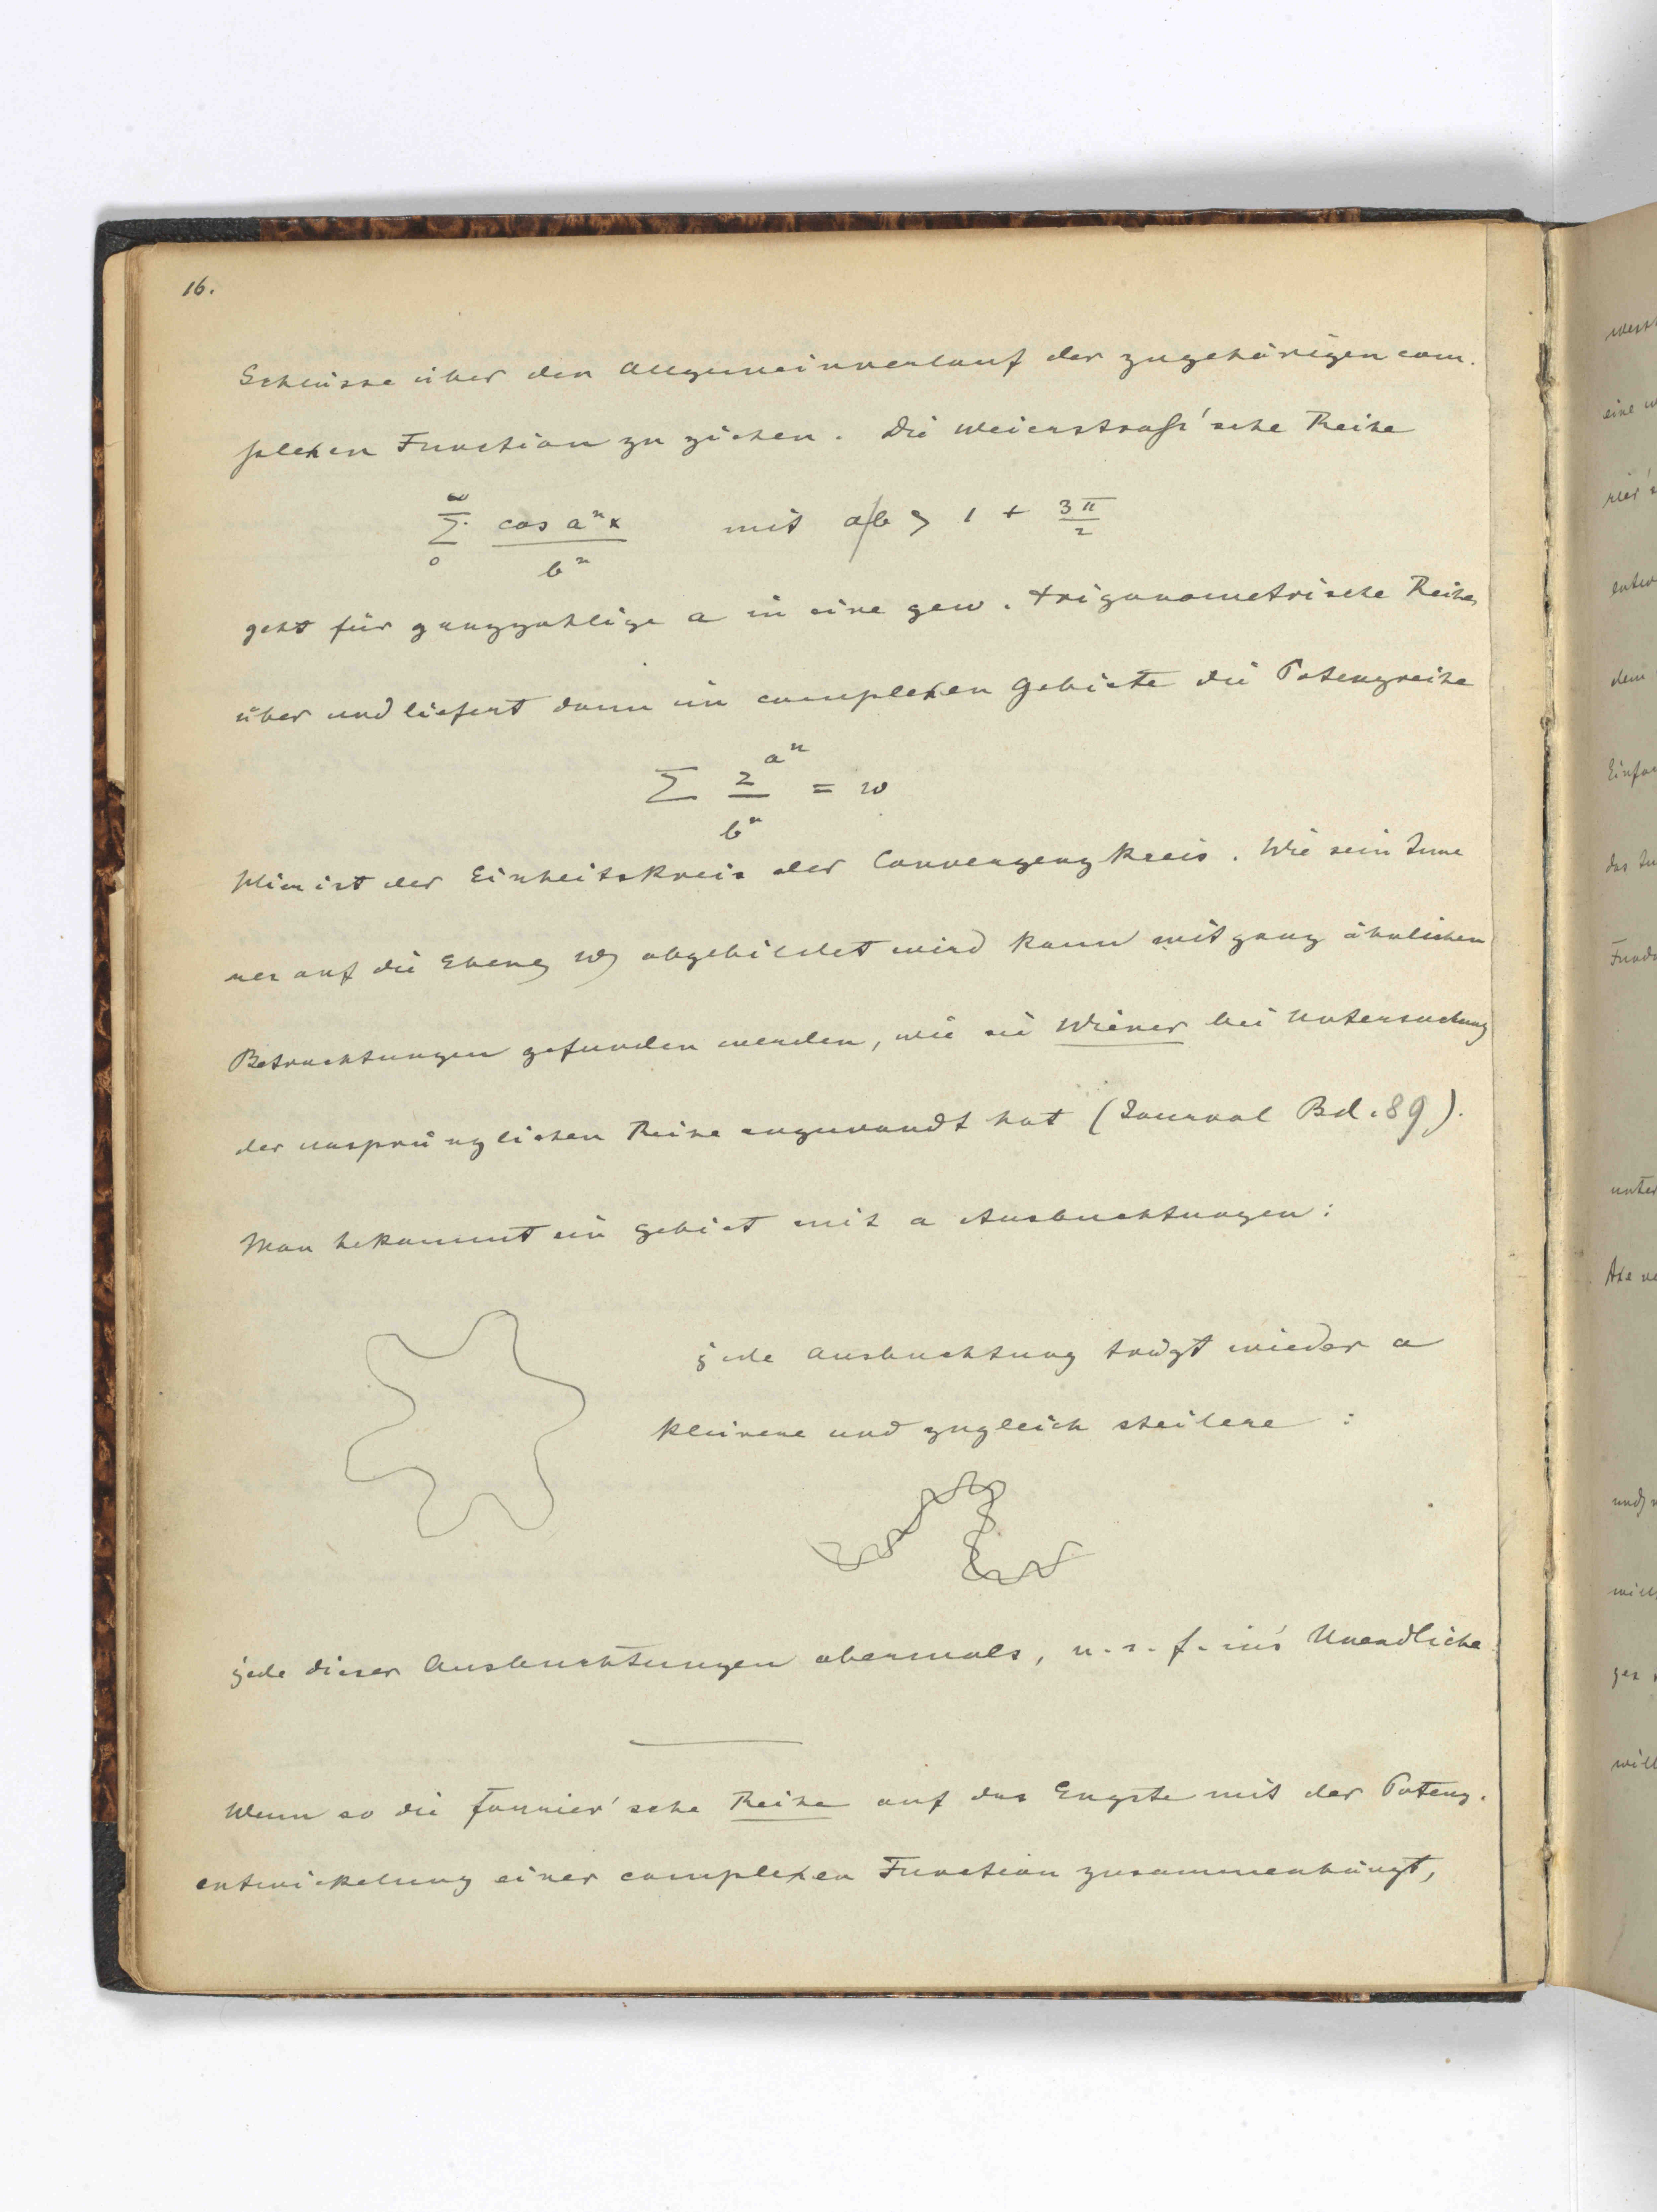 16.
Schlüsse über den Allgemeinverlauf der zugehörigen com-
plexen Function zu ziehen. Die Weierstraß'sche Reihe
∞ Σ 0 cos aⁿx / bⁿ mit a/b > 1 + 3π/2
geht für ganzzahlige a in eine gew. trigonometrische Reihe
über und liefert dann im complexen Gebiete die Potenzreihe
Σ z^(aⁿ) / bⁿ = w
Hier ist der Einheitskreis der Convergenzkreis. Wie sein Inne
res auf die Ebene w abgebildet wird kann mit ganz ähnlichen
Betrachtungen gefunden werden, wie sie Wiener bei Untersuchung
der ursprünglichen Reihe angewandt hat (Journal Bd. 89).
Man bekommt ein Gebiet mit a Ausbuchtungen:
jede Ausbuchtung trägt wieder a
kleinere und zugleich steilere :
jede dieser Ausbuchtungen abermals, u. s. f. in's Unendliche
Wenn so die Fourier'sche Reihe auf das Engste mit der Potenz-
entwickelung einer complexen Function zusammenhängt,